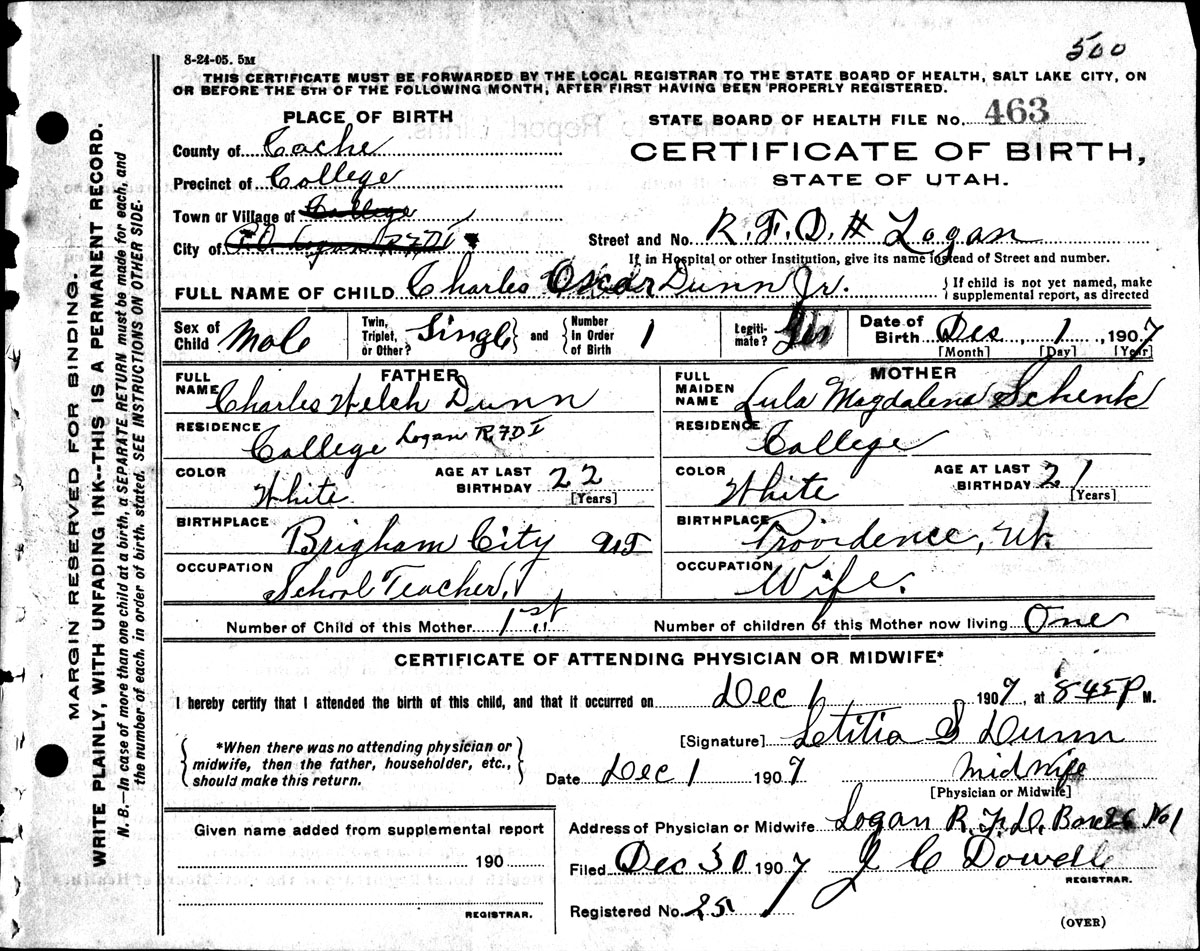 500
8-24-05. 5M
THIS CERTIFICATE MUST BE FORWARDED BY THE LOCAL REGISTRAR TO THE STATE BOARD OF HEALTH, SALT LAKE CITY, ON
OR BEFORE THE 5TH OF THE FOLLOWING MONTH, AFTER FIRST HAVING BEEN PROPERLY REGISTERED.
PLACE OF BIRTH
STATE BOARD OF HEALTH FILE NO. 463
County of Cache
CERTIFICATE OF BIRTH,
Precinct of College
STATE OF UTAH.
Town or Village of College
City of P.O. Logan R.F.D I
Street and No. R.F.D # Logan
If in Hospital or other Institution, give its name instead of Street and number.
FULL NAME OF CHILD Charles Oscar Dunn Jr.
{ If child is not yet named, make supplemental report, as directed
Sex of Child Male Twin, Triplet, or Other? Single } and { Number In Order of Birth 1 Legitimate? Yes Date of Birth Dec 1, 1907
[Month] [Day] [Year]
FATHER MOTHER
FULL NAME Charles Welch Dunn FULL MAIDEN NAME Lula Magdalena Schenk
RESIDENCE College Logan R.F.D I RESIDENCE College
COLOR White AGE AT LAST BIRTHDAY 22 [Years] COLOR White AGE AT LAST BIRTHDAY 21 [Years]
BIRTHPLACE Brigham City UT BIRTHPLACE Providence, Ut.
OCCUPATION School Teacher. OCCUPATION Wife.
Number of Child of this Mother 1st Number of children of this Mother now living One
CERTIFICATE OF ATTENDING PHYSICIAN OR MIDWIFE*
I hereby certify that I attended the birth of this child, and that it occurred on Dec 1 1907, at 8 45 P M.
{ *When there was no attending physician or midwife, then the father, householder, etc., should make this return. }
[Signature] Letitia S Dunn
Date Dec 1 1907 Midwife
[Physician or Midwife]
Address of Physician or Midwife Logan R.F.D. Box 26 No 1
Filed Dec 30 1907 J C Dowdle
REGISTRAR.
Registered No. 251
(OVER)
Given name added from supplemental report
190
REGISTRAR.
MARGIN RESERVED FOR BINDING.
WRITE PLAINLY, WITH UNFADING INK--THIS IS A PERMANENT RECORD.
N. B.--In case of more than one child at birth, a SEPARATE RETURN must be made for each, and
the number of each, in order of birth, stated. SEE INSTRUCTIONS ON OTHER SIDE.